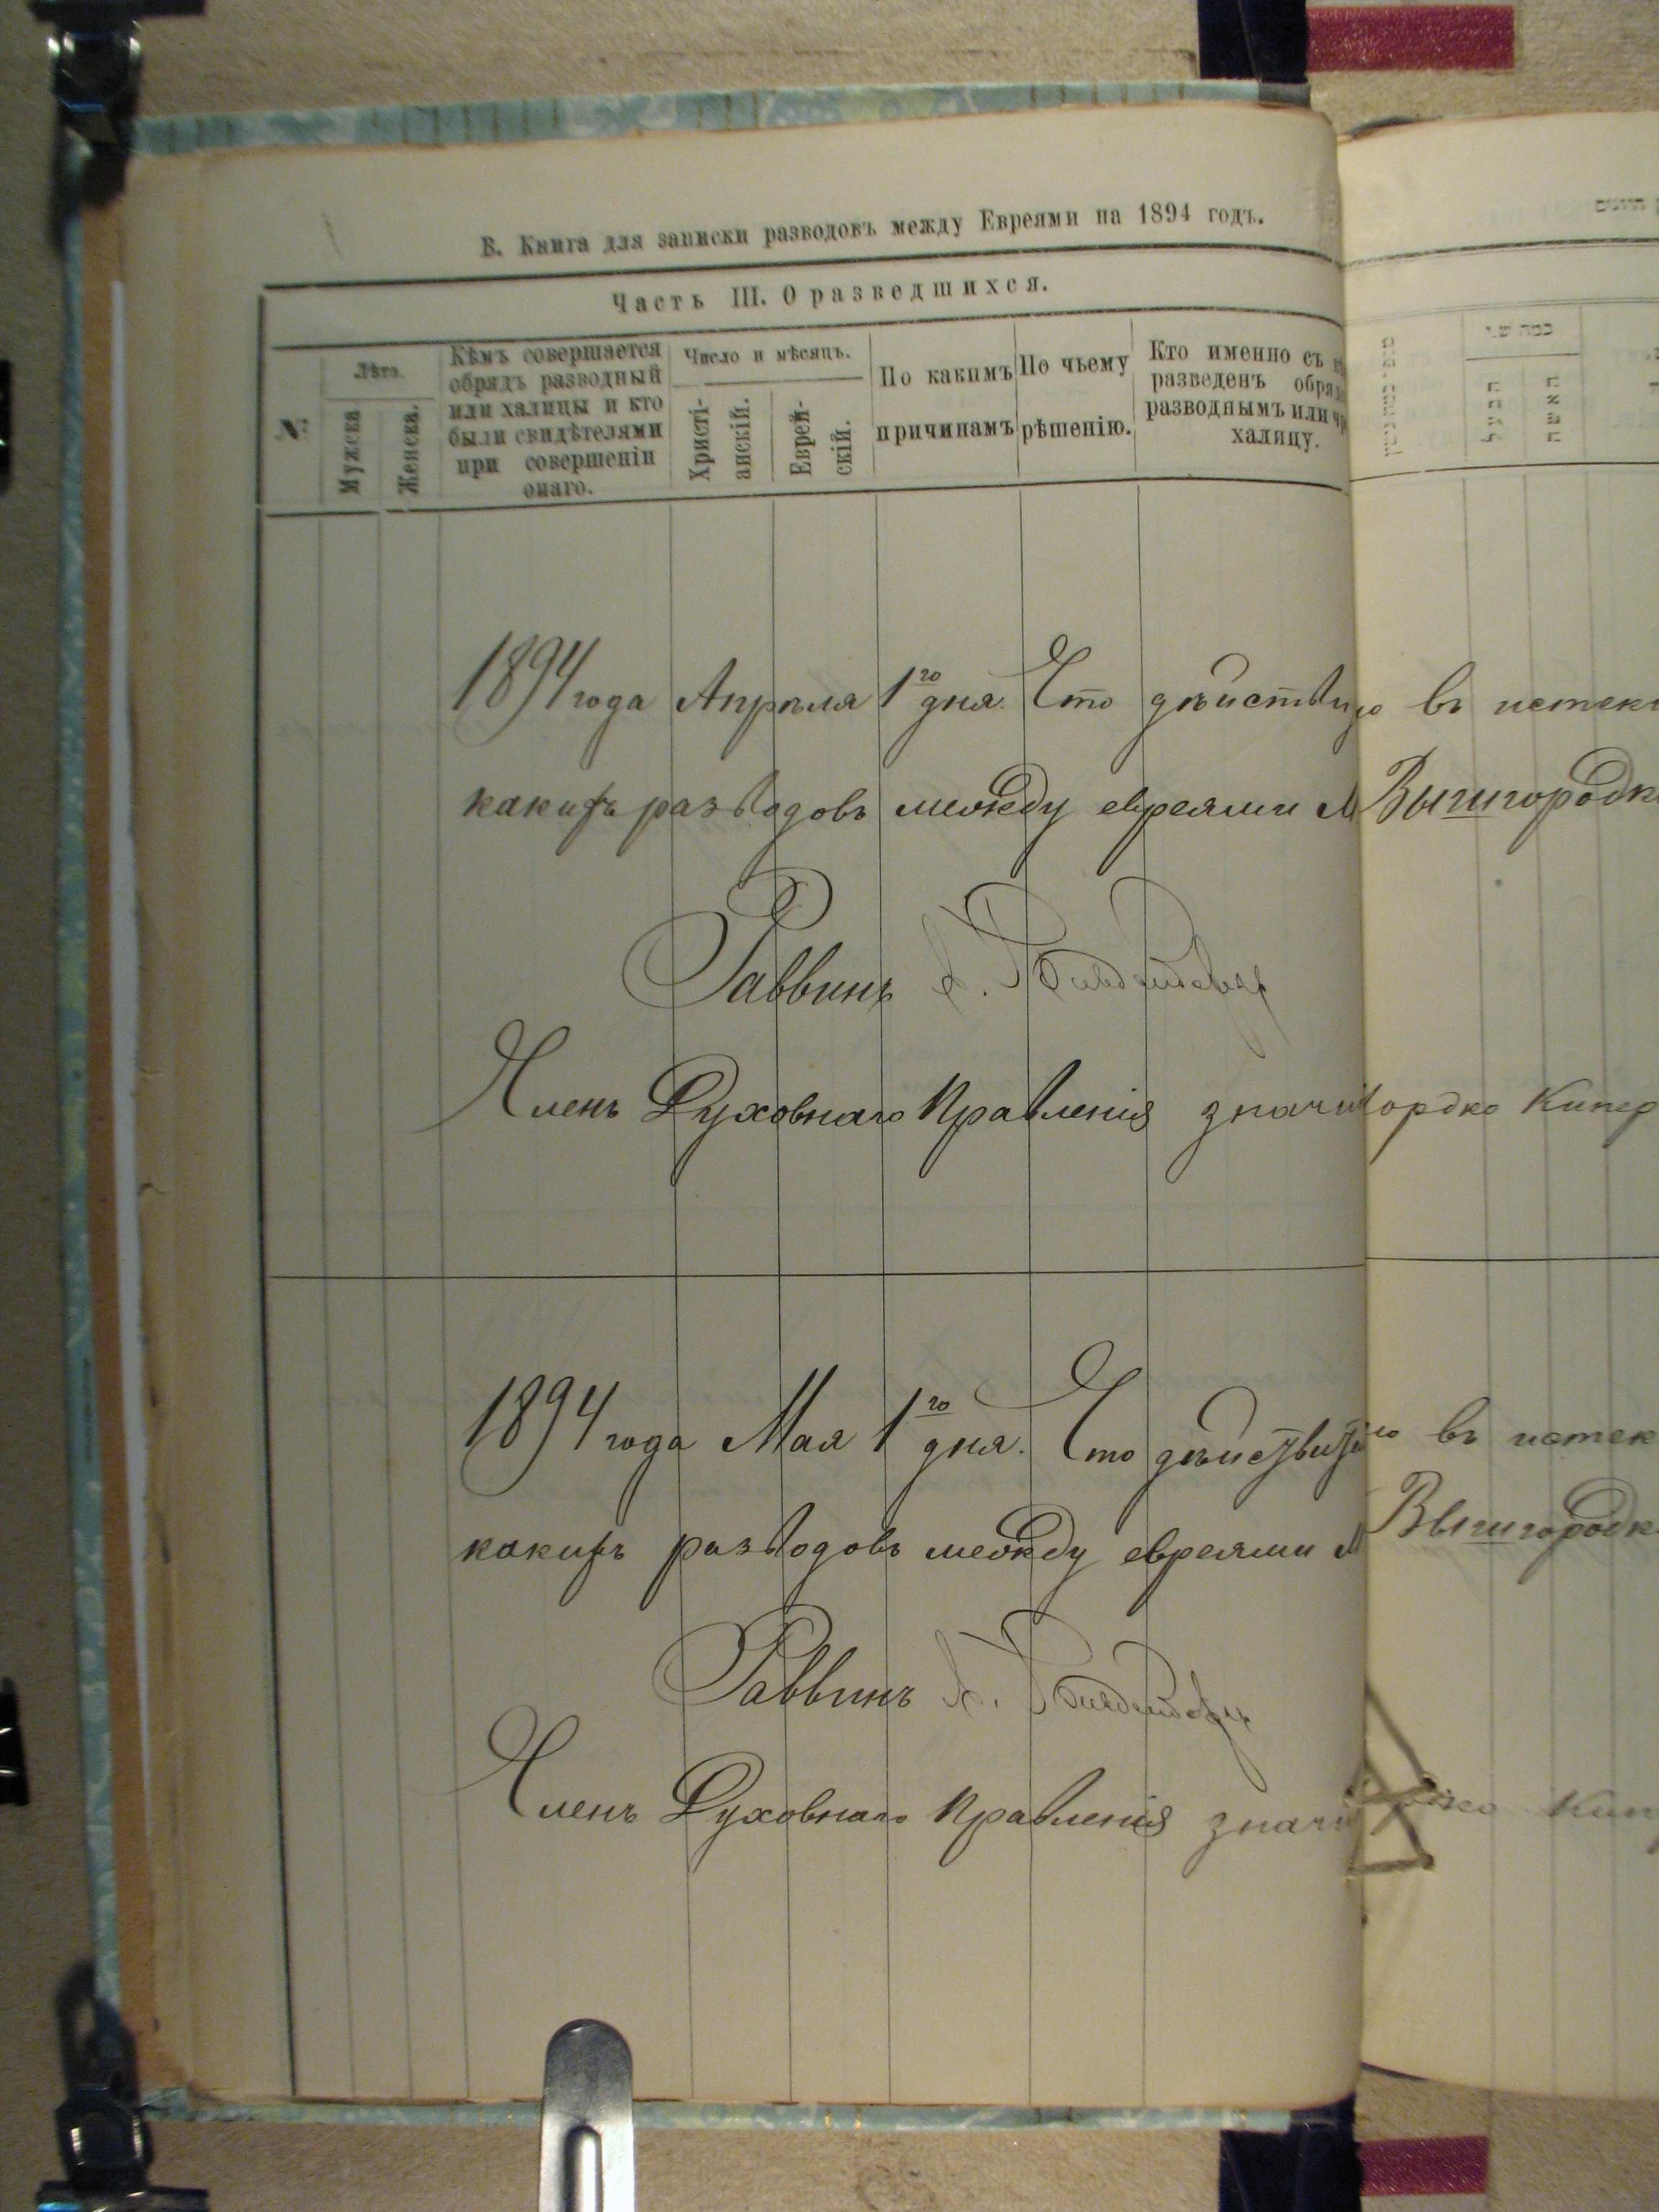 В. Книга для записки разводовъ между Евреями на 1894 годъ.
Часть III. О разведшихся.
№
Лѣта.
Мужска
Женска.
Кѣмъ совершается
обрядъ разводный
или халицы и кто
были свидѣтелями
при совершеніи
онаго.
Число и мѣсяцъ.
Христі-
анскій.
Еврей-
скій.
По какимъ
причинамъ
По чьему
рѣшенію.
Кто именно съ
разведенъ
разводнымъ или
халицу.
כמה שני
הבעל
האשה
1894 года Апрѣля 1го дня. Что въ
какихъ разводовъ между евреями М Вышгородк
Раввинъ
Членъ Духовнаго Правленія Кипер
1894 года Мая 1го дня. Что въ
какихъ разводовъ между евреями М Вышгородк
Раввинъ
Членъ Духовнаго Правленія